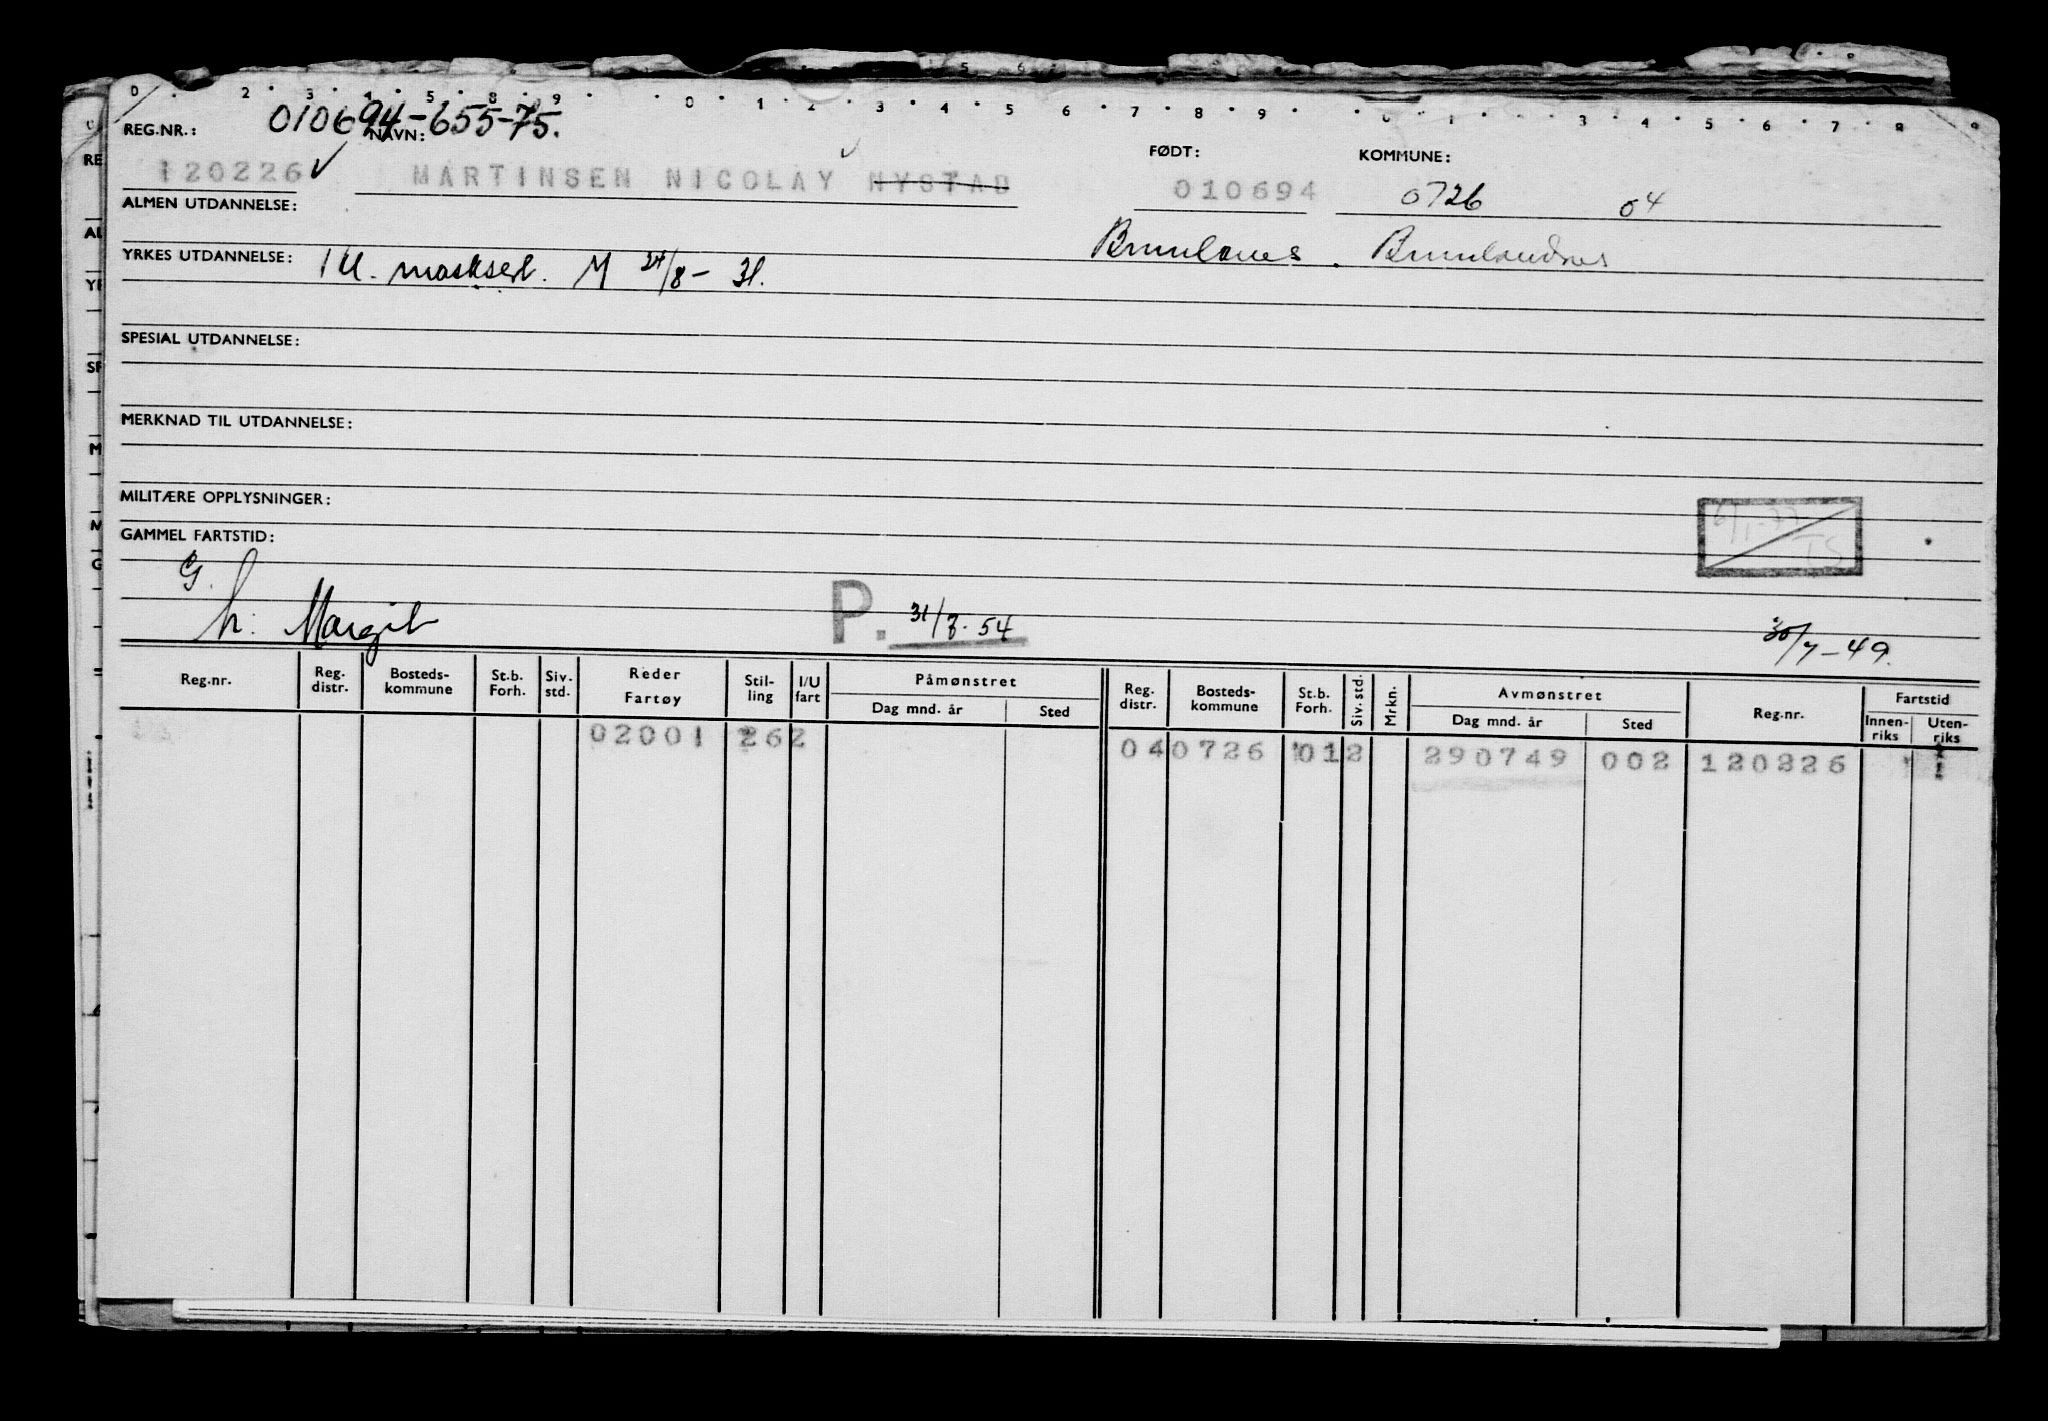 0 . 2 . 3 . 4 . 5 . 8 . 9 . . 0 . 1 . 2 . 3 . 4 . 5 . 6 . 7 . 8 . 9 . . 1 . . 3 . 4 . 5 . 6 . 7 . 8 9
REG.NR.: 010694-655-75. NAVN: FØDT: KOMMUNE:
120226 ✓ MARTINSEN NICOLAY NYSTAD 010694 0726 04
ALMEN UTDANNELSE:
Brunlanes
YRKES UTDANNELSE: M 24/8-31.
SPESIAL UTDANNELSE:
MERKNAD TIL UTDANNELSE:
MILITÆRE OPPLYSNINGER:
GAMMEL FARTSTID:
TS
G.
h. Margit P. 31/7.54 30/7-49.
Reg.nr. Reg. distr. Bosteds-kommune St.b. Forh. Siv. std. Reder Fartøy Stil-ling I/U fart Påmønstret Dag mnd. år Sted Reg. distr. Bosteds-kommune St.b. Forh. Siv. std. Mrkn. Avmønstret Dag mnd. år Sted Reg.nr. Fartstid Innen-riks Uten-riks
02001 262 04 0726 012 290749 002 120226